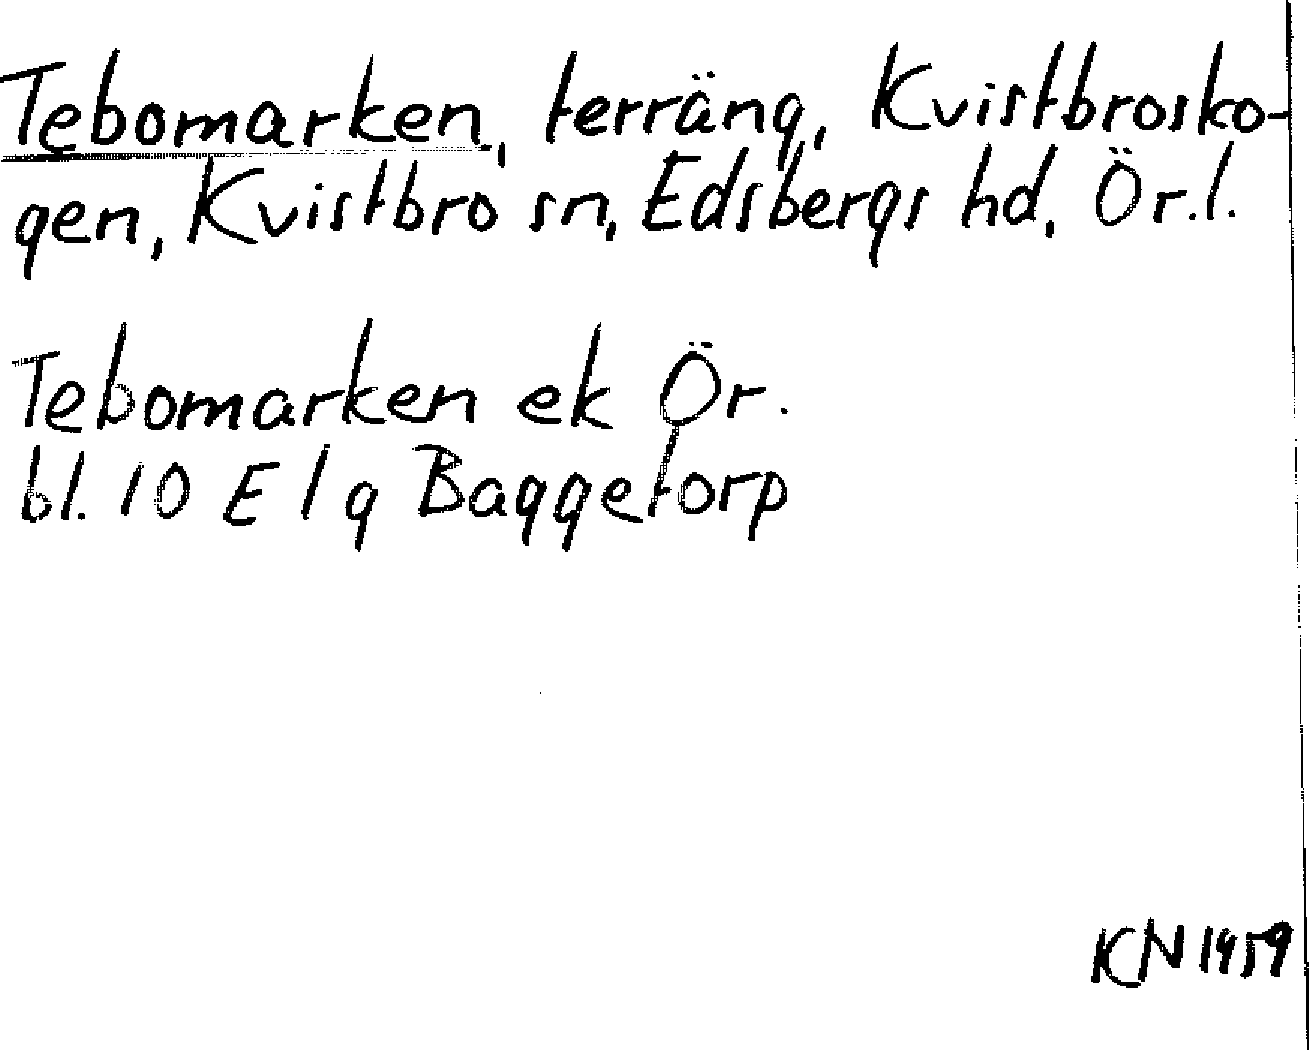 Tebomarken, terräng, Kvistbrosko-
gen, Kvistbro sn, Edsbergs hd, Ör.l.
Tebomarken ek Ör.
bl. 10 E 1 g Baggetorp
KN 1959